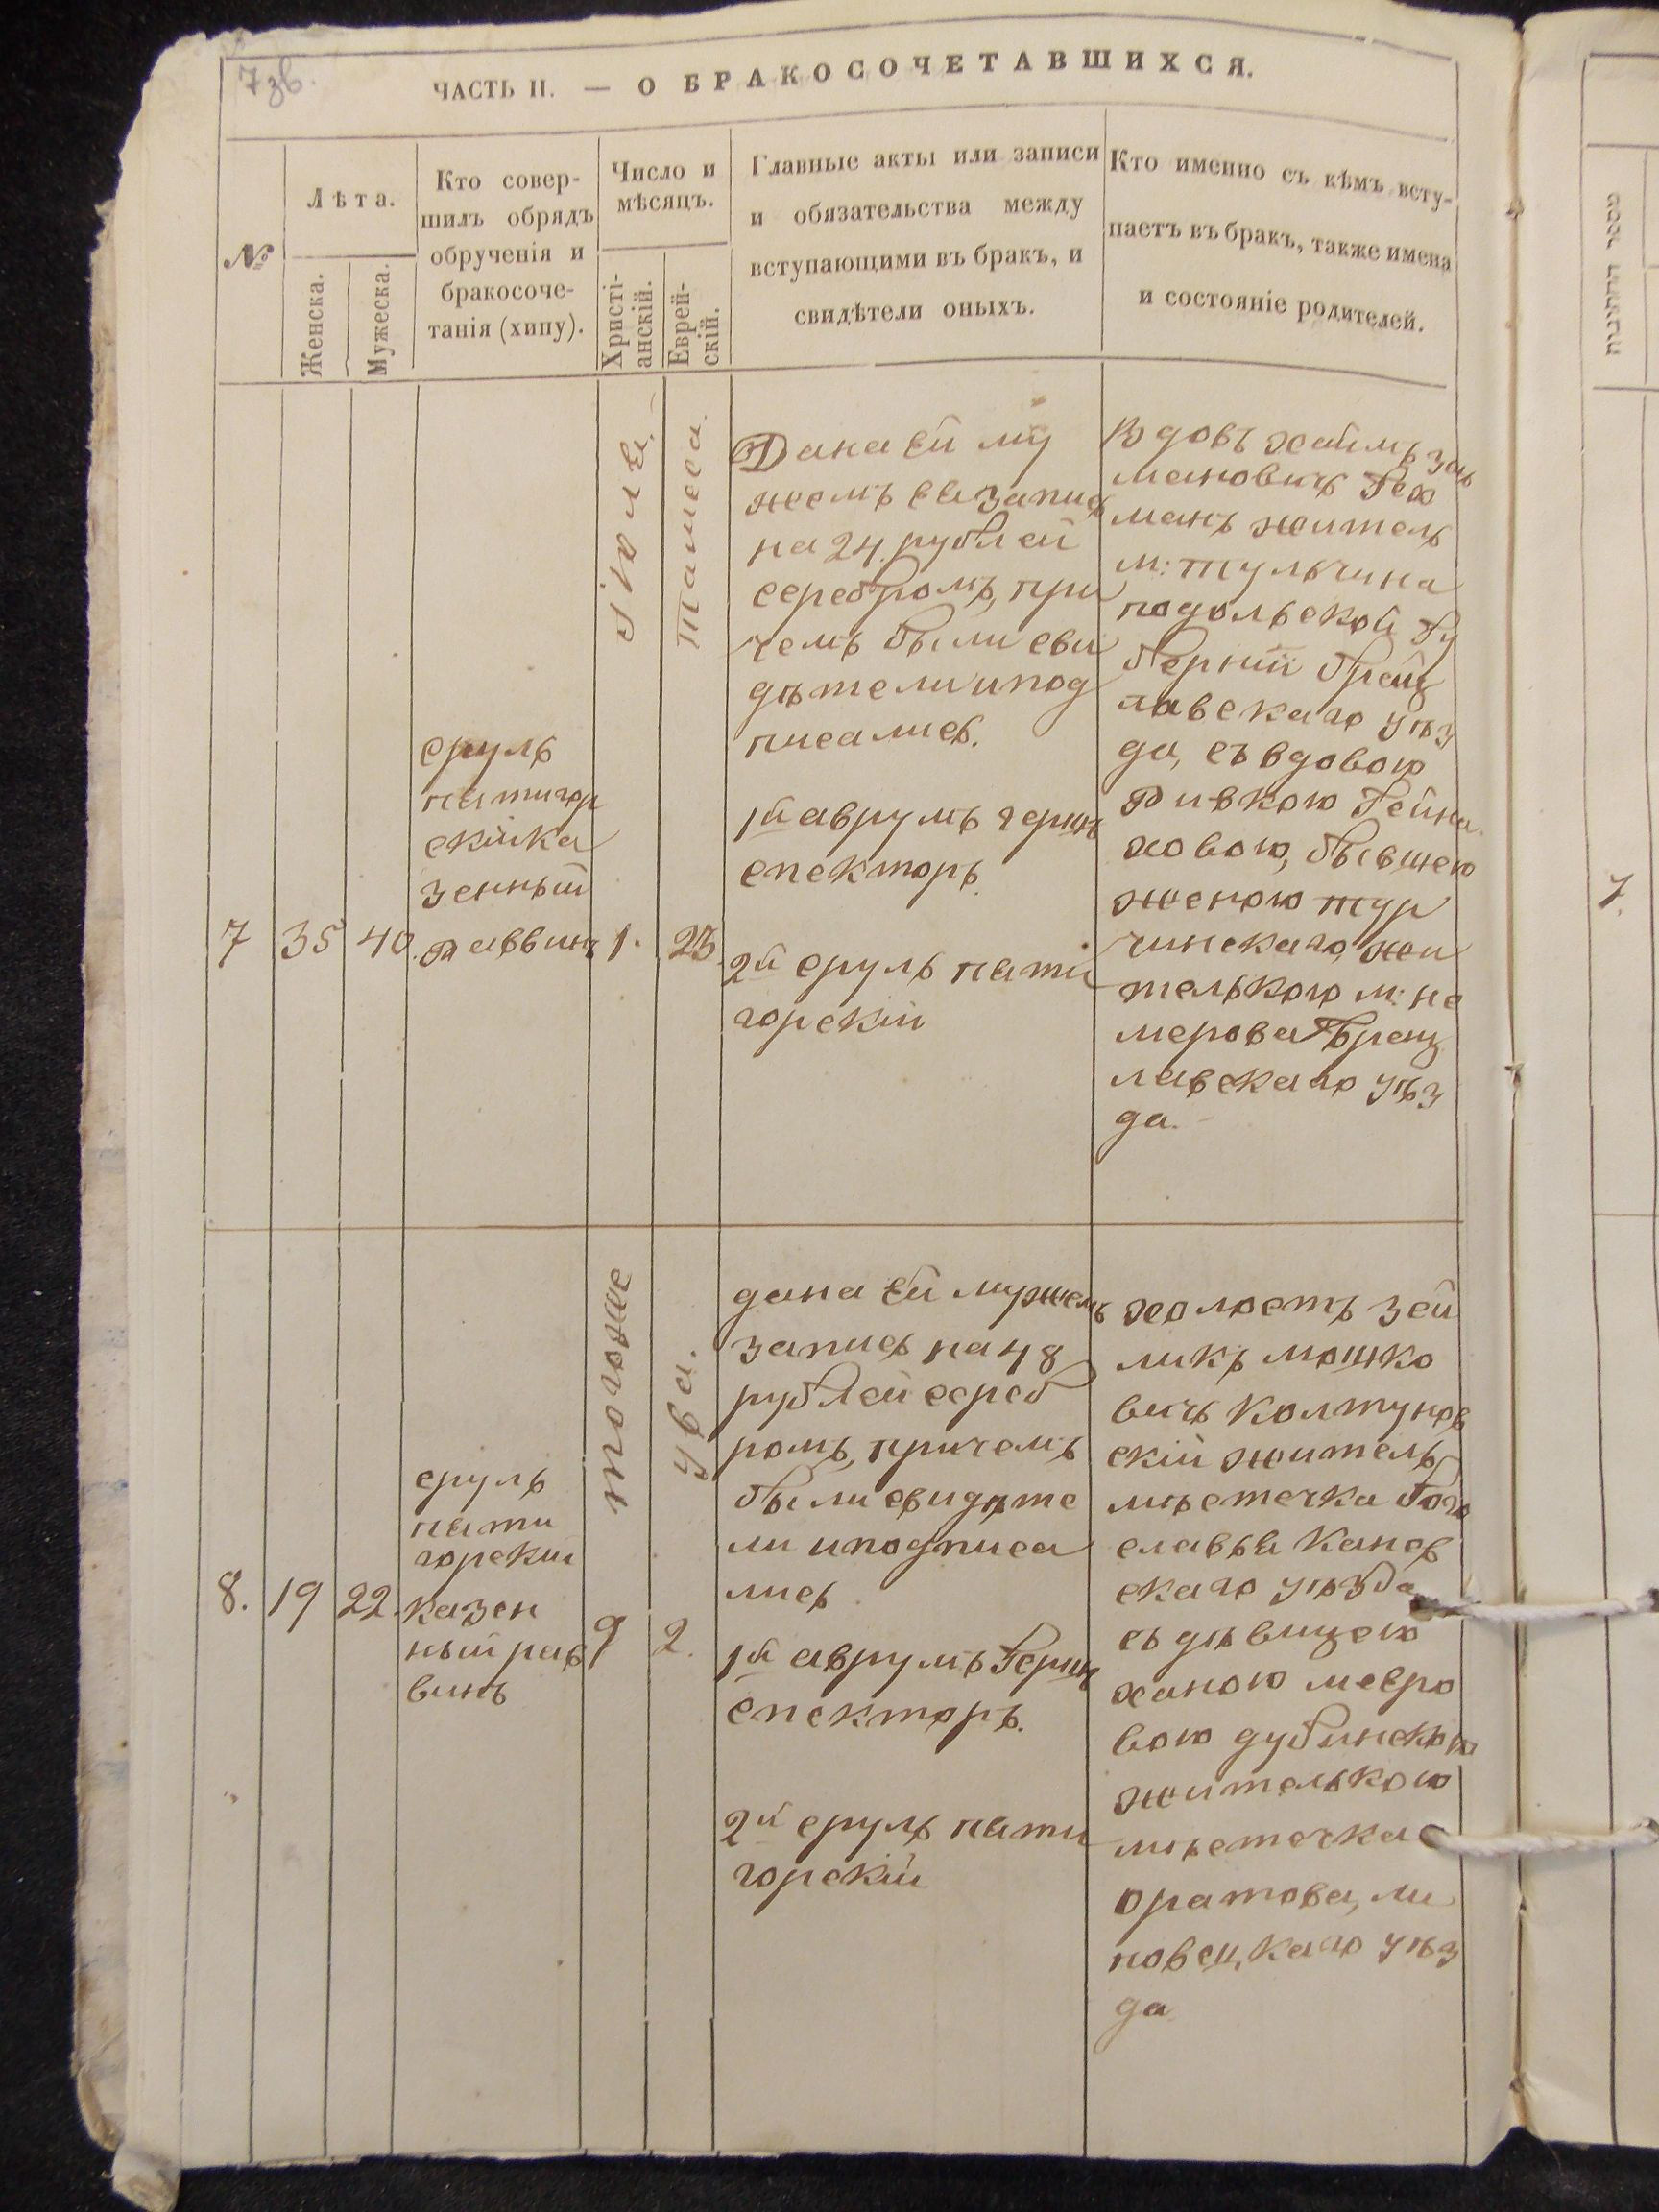 7зв.
ЧАСТЬ II. — О БРАКОСОЧЕТАВШИХСЯ.
№
Лѣта.
Женска.
Мужеска.
Кто совер-
шилъ обрядъ
обрученія и
бракосоче-
танія (хипу).
Число и
мѣсяцъ.
Христі-
анскій.
Еврей-
скій.
Главные акты или записи
и обязательства между
вступающими въ бракъ, и
свидѣтели оныхъ.
Кто именно съ кѣмъ всту-
паетъ въ бракъ, также имена
и состояніе родителей.
7
35
40.
сруль
пятигор
скій ка
зенный
раввинъ
Іюля
1.
Тамеса.
23.
Дана ей му
жемъ ея запись
на 24 рублей
серебромъ, при
чемъ были сви
дѣтели и под
писались.
1й аврумъ герш
спекторъ.
2й сруль пяти
горскій
Вдовъ хаимъ зель
мановичъ
манъ житель
м: тульчина
подольской гу
берніи брац
лавскаго уѣз
да, съ вдовою
Ривкою Гейна
ховою, бывшею
женою тур
чинскаго, жи
телькою м: не
мерова брац
лавскаго уѣз
да.
8.
19
22.
сруль
пяти
горскій
казен
ный рав
винъ
тогоже
9
Ува.
2.
дана ей мужемъ
запись на 48
рублей сереб
ромъ, причемъ
были свидѣте
ли и подписа
лись
1й аврумъ герш
спекторъ.
2й сруль пяти
горскій
холостъ зей
ликъ мошко
вичъ колтунов
скій житель
мѣстечка бого
славья канев
скаго уѣзда
съ дѣвицею
ханою мееро
вою дубинскою
жителькою
мѣстечка
оратова, ли
повецкаго уѣз
да
מספר החתונות
7.